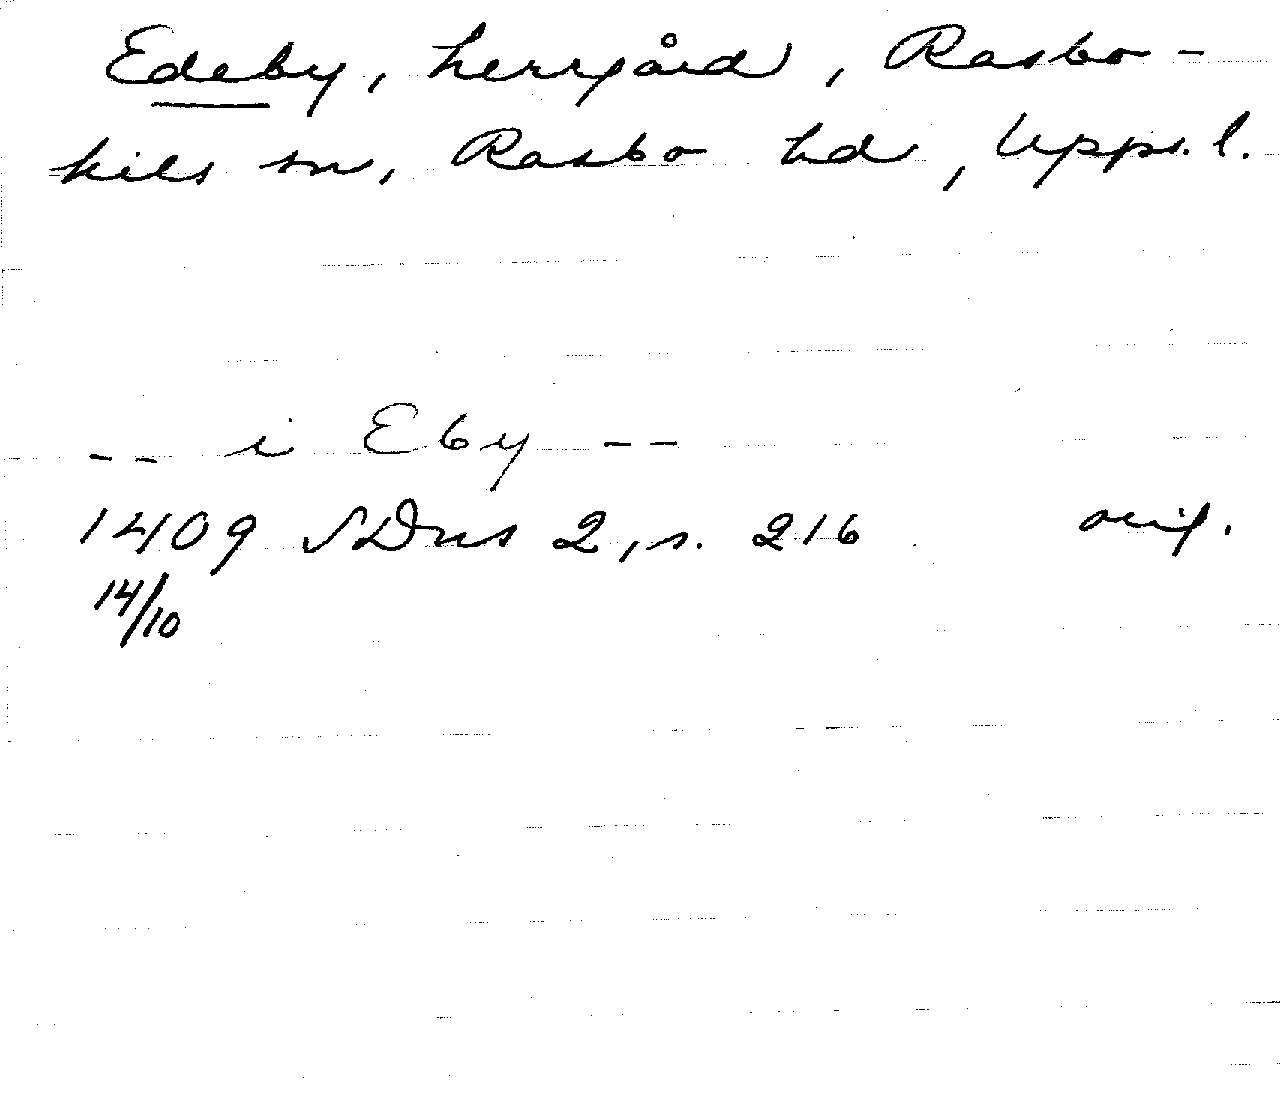 Edeby, herrgård, Rasbo-
kils sn, Rasbo hd, Upps. l.
-- i Eby --
1409 SDns 2, s. 216 orig.
14/10